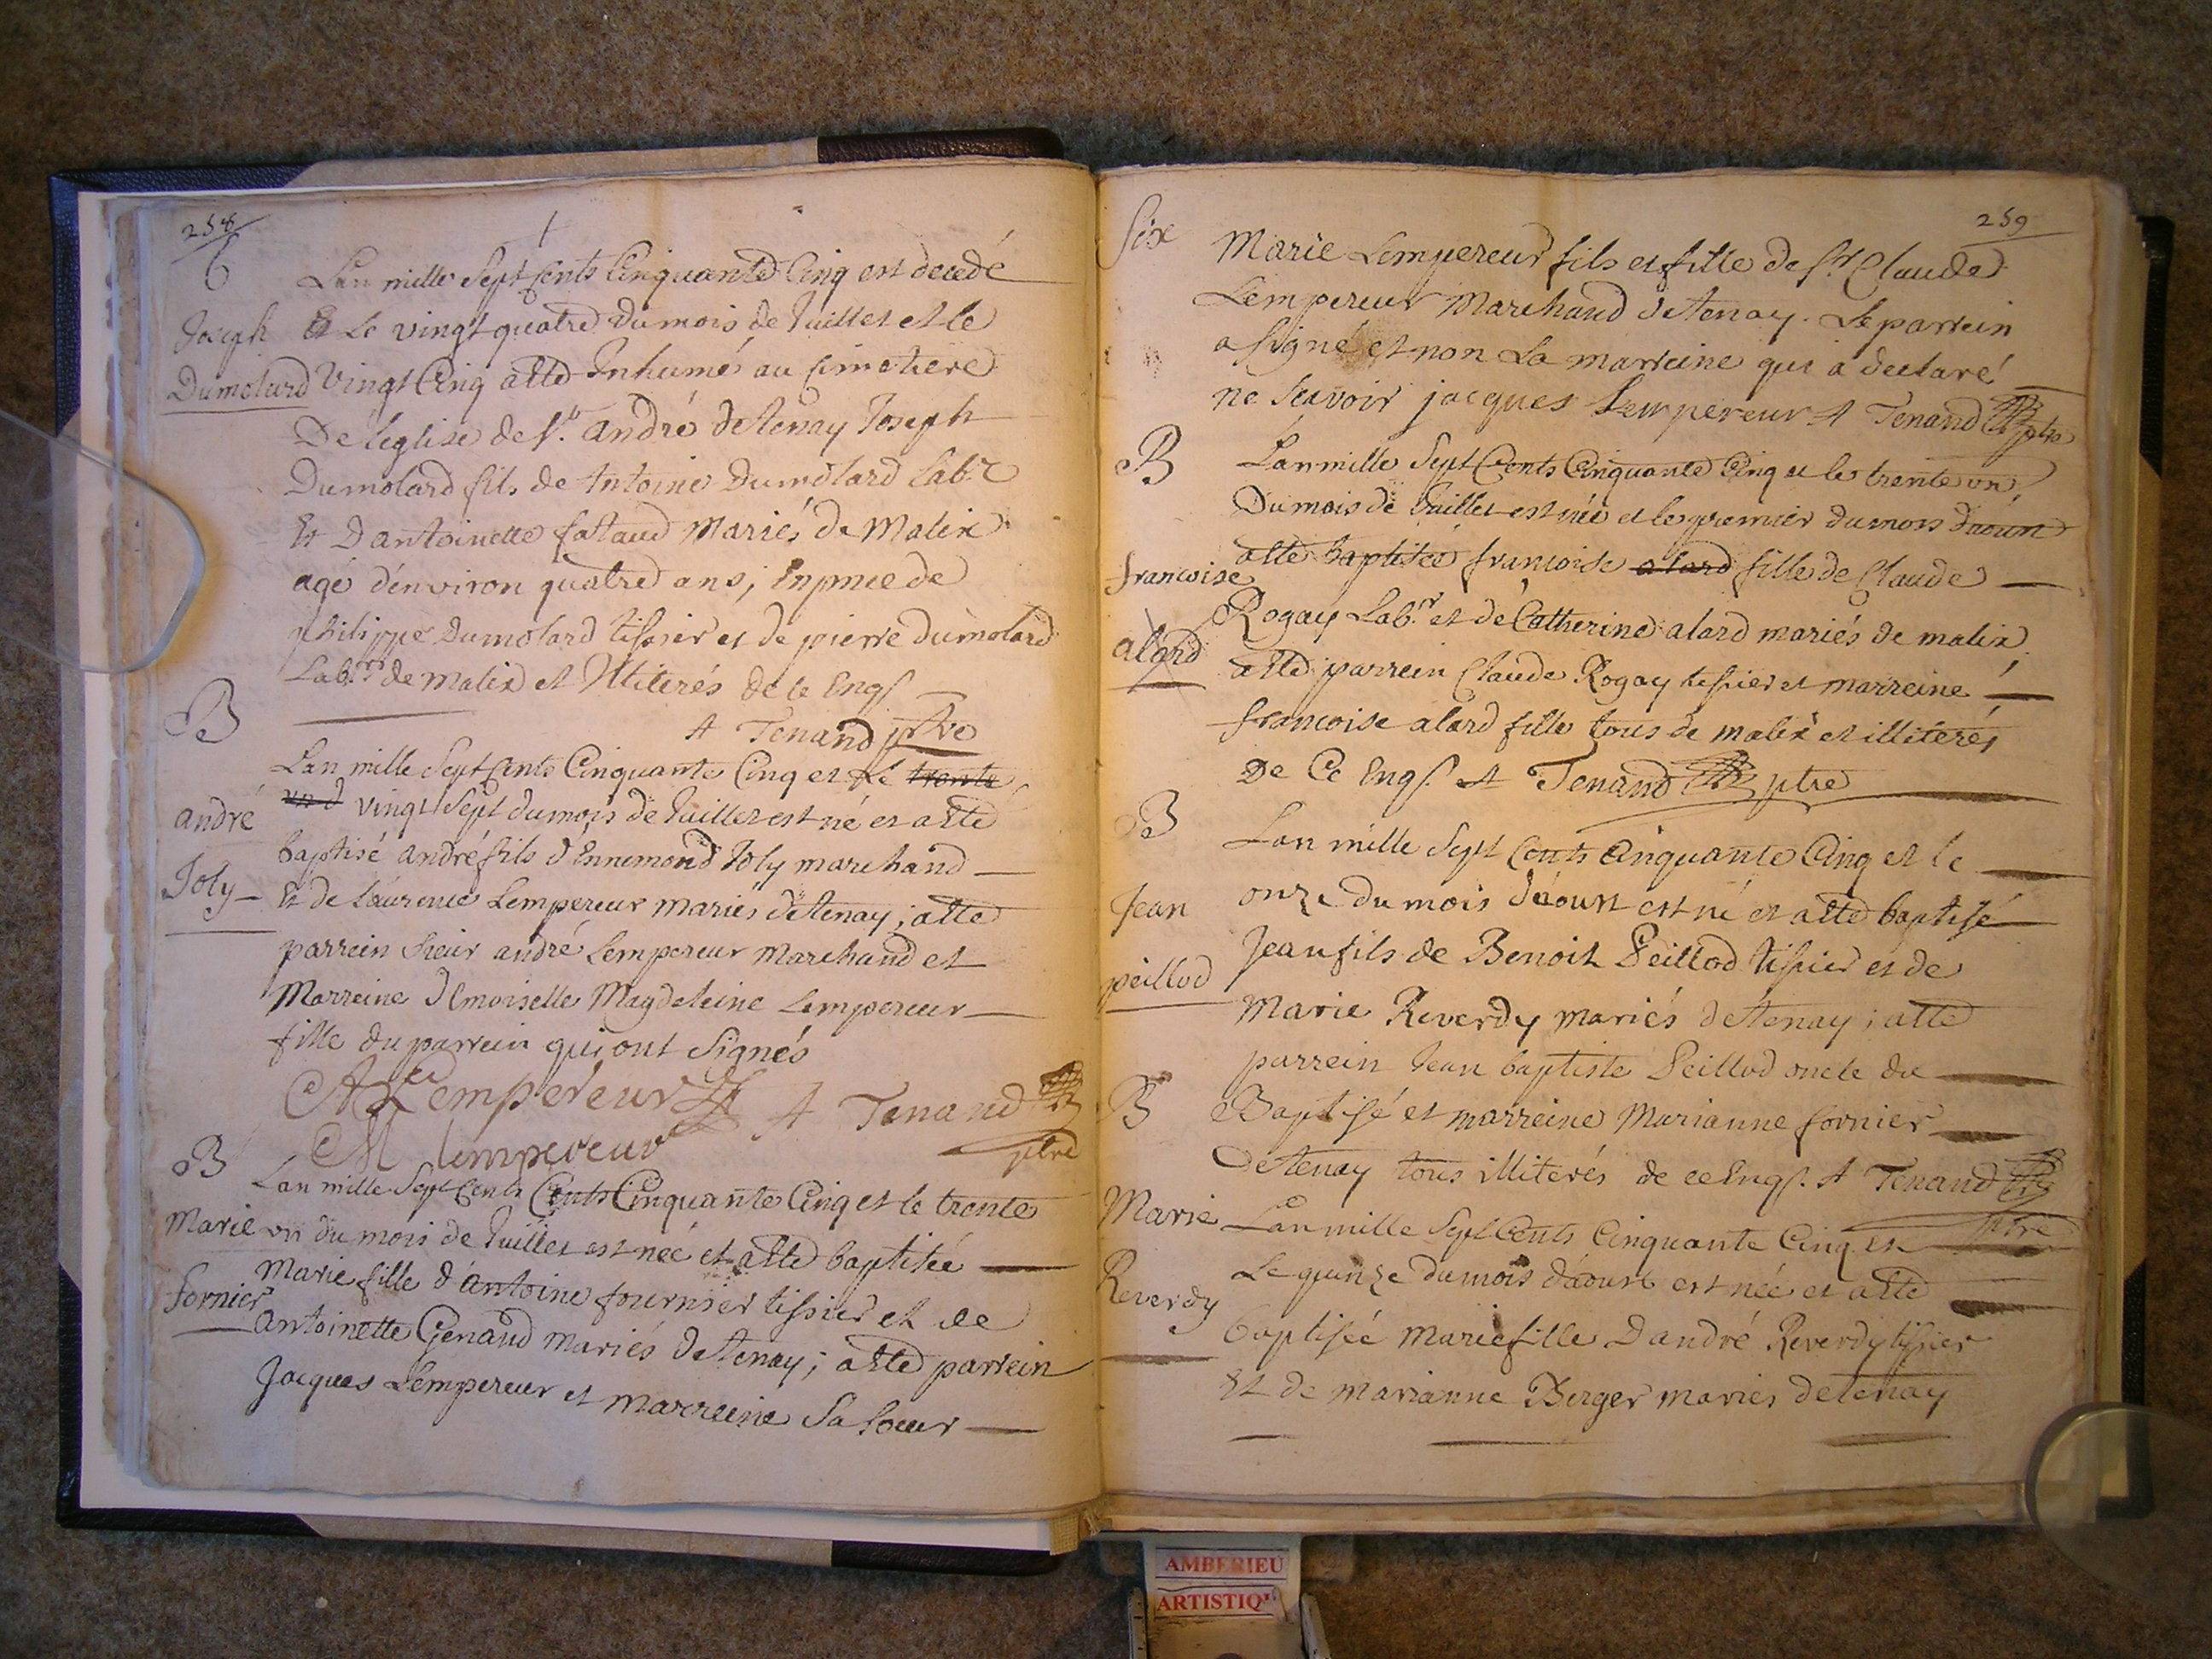 258
6
Joseph
Dumolard
Lan mille Sept Cents Cinquante Cinq est decedé
Et Le vingt quatre du mois de Juillet et le
Vingt Cinq a été Inhumé au Cimetiere
De l'eglise de St. andré de tenay Joseph
Dumolard fils de Antoine Dumolard Labr
Et D antoinette fataud Mariés de Malix
agé d'environ quatre ans, En pnce de
philippe Dumolard tissier et de pierre dumolard
Labrs de malix et Illiterés de ce Enqs
A Tenand ptre
B
andré
Joly
Lan mille Sept Cents Cinquante Cinq et Le trente
un vingt Sept du mois de Juillet est né et a été
baptisé andré fils d'Ennemond Joly marchand
Et de Laurence Lempereur mariés de tenay; a été
parrein Sieur andré Lempereur Marchand et
Marreine Dlmoiselle Magdeleine Lempereur
fille du parrein qui ont Signés
A Lempereur A Tenand
M lempereur ptre
B
Marie
fornier
Lan mille Sept Cents Cents Cinquante Cinq et le trente
un du mois de Juillet est neé et a été baptisée
Marie fille d'antoine fournier tissier et de
antoinette Genaud mariés de tenay; a été parrein
Jacques Lempereur et marreine Sa Soeur
259
Six
Marie Lempereur fils et fille de Sr Claude
Lempereur Marchand de tenay. Le parrein
a signé et non La marreine qui a declaré
ne Scavoir jacques Lempereur A Tenand ptre
B
francoise
alard
Lan mille Sept Cents Cinquante Cinq et le trente un
Du mois de Juillet est née et le premier du mois daoun
a été baptisée francoise alard fille de Claude
Rogay Labr. et de Catherine alard mariés de malix
a été parrein Claude Rogay tissier et marreine
francoise alard fille tous de malix et illiterés
De Ce Enqs. A Tenand ptre
B
Jean
peillod
Lan mille Sept Cents Cinquante Cinq et le
onze du mois d'aoust est né et a été baptisé
Jean fils de Benoit Peillod tissier et de
Marie Reverdy mariés de tenay; a été
parrein Jean baptiste Peillod oncle du
Baptisé et marreine Marianne fornier
De tenay tous illiterés de ce Enqs. A Tenand
ptre
B
Marie
Reverdy
Lan mille Sept Cents Cinquante Cinq et
Le quinze du mois d'aoust est née et a été
baptisée Marie fille D andré Reverdy tissier
Et de marianne Berger mariés de tenay
AMBERIEU
ARTISTIQU